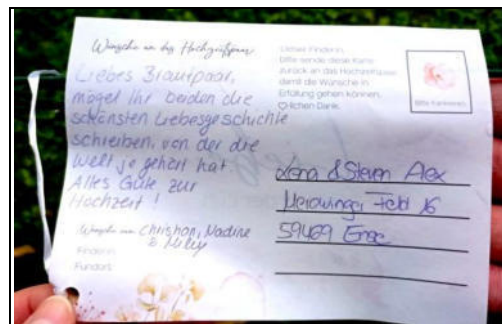 Wünsche an das Hochzeitspaar
Liebes Brautpaar,
möget ihr beiden die
schönsten Liebesgeschichte
schreiben, von der die
Welt je gehört hat
Alles Gute zur
Hochzeit !
Wünsche von Christian, Nadine
& Miley
Finder:in:
Fundort:
Liebe:r Finder:in,
bitte sende diese Karte
zurück an das Hochzeitspaar,
damit die Wünsche in
Erfüllung gehen können.
lichen Dank.
Bitte frankieren
Lena & Steven Alex
Merowinger Feld 16
59469 Ense